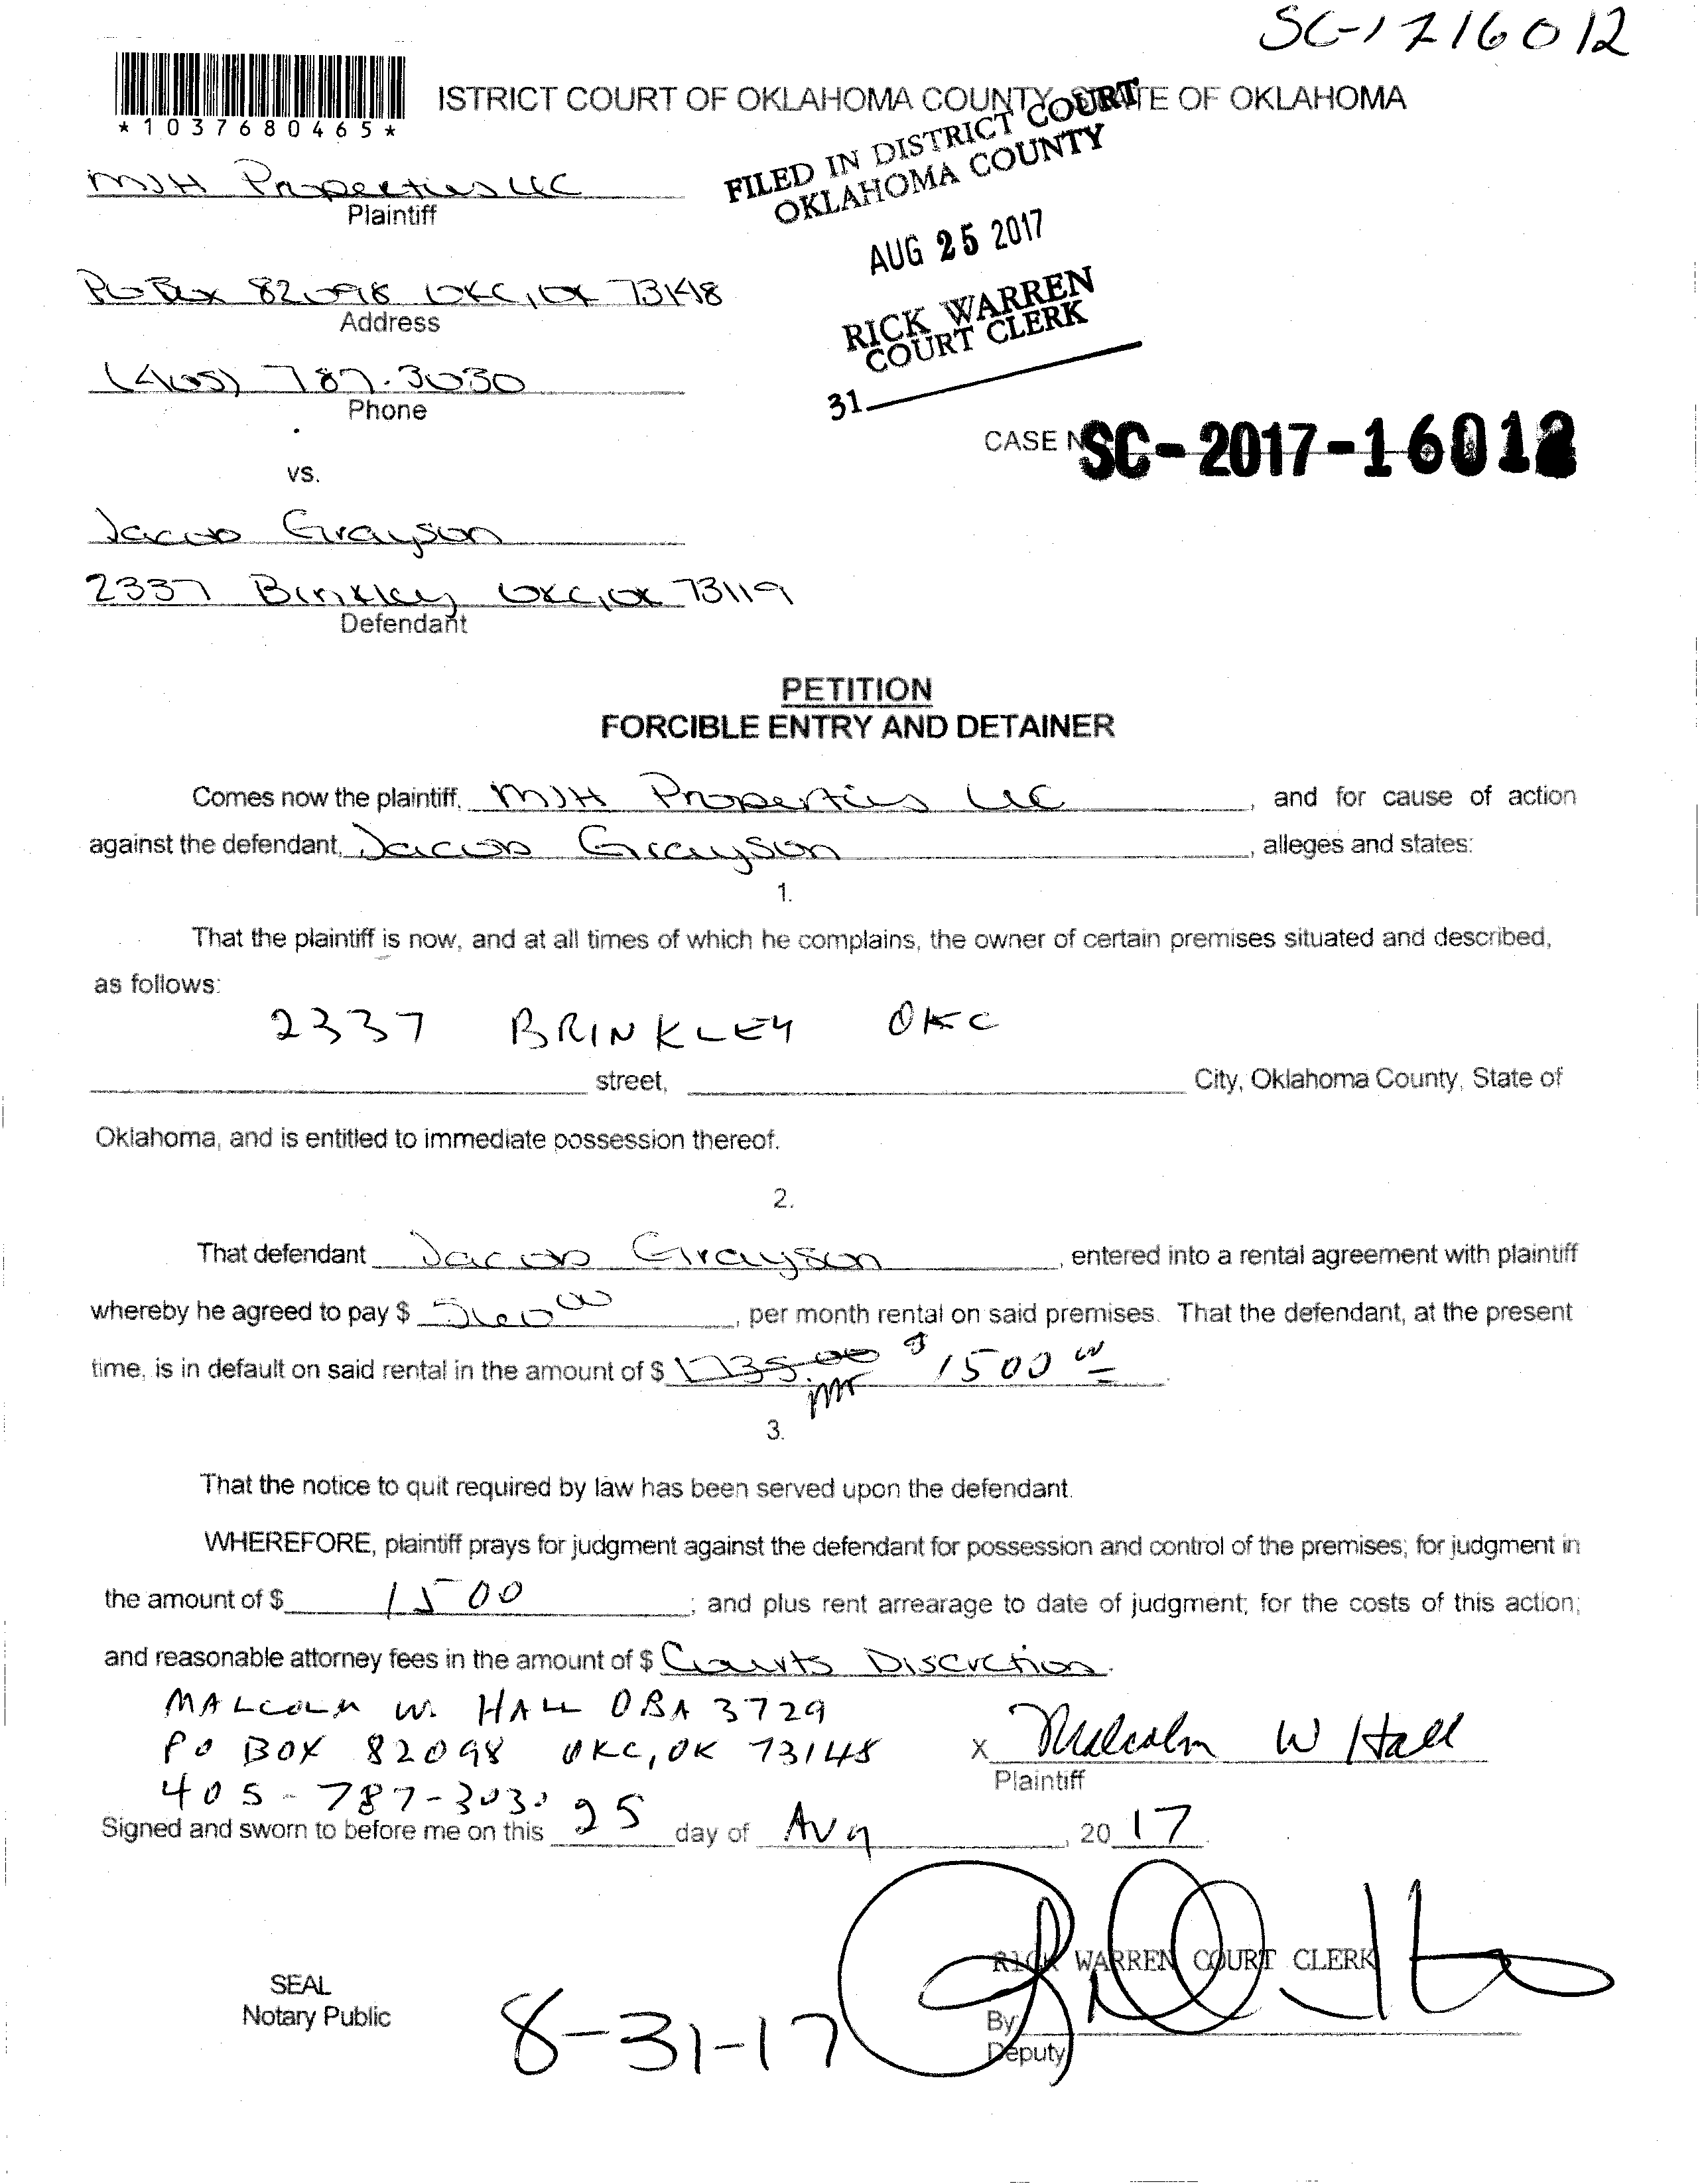 SC-1716012
*1037680465*
ISTRICT COURT OF OKLAHOMA COUNTY, STATE OF OKLAHOMA
FILED IN DISTRICT COURT
OKLAHOMA COUNTY
MJH Properties LLC
Plaintiff
AUG 25 2017
PO Box 82098 OKC, OK 73148
Address
RICK WARREN
COURT CLERK
(405) 787-3030
Phone
31
CASE N SC-2017-16012
vs.
Jacob Grayson
2337 Binkley OKC, OK 73119
Defendant
PETITION
FORCIBLE ENTRY AND DETAINER
Comes now the plaintiff, MJH Properties LLC, and for cause of action
against the defendant, Jacob Grayson, alleges and states:
1.
That the plaintiff is now, and at all times of which he complains, the owner of certain premises situated and described,
as follows:
2337 BRINKLEY OKC
street, City, Oklahoma County, State of
Oklahoma, and is entitled to immediate possession thereof.
2.
That defendant Jacob Grayson, entered into a rental agreement with plaintiff
whereby he agreed to pay $, per month rental on said premises. That the defendant, at the present
time, is in default on said rental in the amount of $ 1735.00 $1500 00.
3.
That the notice to quit required by law has been served upon the defendant.
WHEREFORE, plaintiff prays for judgment against the defendant for possession and control of the premises; for judgment in
the amount of $ 1500; and plus rent arrearage to date of judgment; for the costs of this action;
and reasonable attorney fees in the amount of $ Courts Discretion.
MALCOLM W. HALL OBA 3729
PO BOX 82098 OKC, OK 73148
x Malcolm W Hall
Plaintiff
405-787-3030
Signed and sworn to before me on this 25 day of Aug, 20 17.
RICK WARREN COURT CLERK
SEAL
Notary Public
8-31-17
By
Deputy